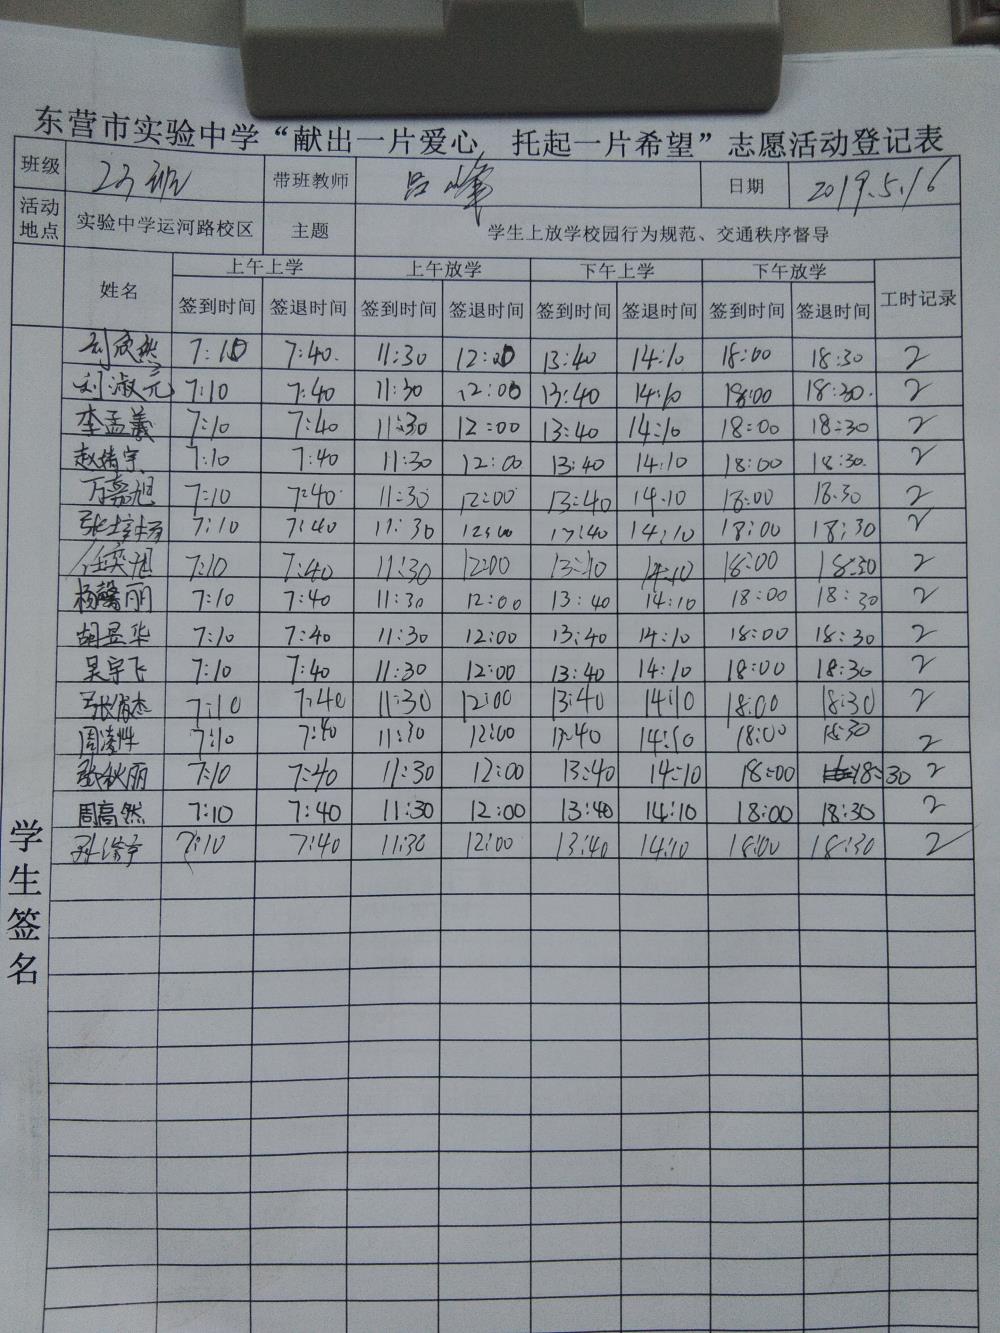 东营市实验中学“献出一片爱心 托起一片希望”志愿活动登记表
班级 23班 带班教师 吕峰 日期 2019.5.16
活动地点 实验中学运河路校区 主题 学生上放学校园行为规范、交通秩序督导
姓名 上午上学 上午放学 下午上学 下午放学 工时记录
签到时间 签退时间 签到时间 签退时间 签到时间 签退时间 签到时间 签退时间
学生签名
刘欣然 7:10 7:40 11:30 12:00 13:40 14:10 18:00 18:30 2
刘淑元 7:10 7:40 11:30 12:00 13:40 14:10 18:00 18:30 2
李孟羲 7:10 7:40 11:30 12:00 13:40 14:10 18:00 18:30 2
赵靖宇 7:10 7:40 11:30 12:00 13:40 14:10 18:00 18:30 2
万嘉旭 7:10 7:40 11:30 12:00 13:40 14:10 18:00 18:30 2
张 7:10 7:40 11:30 12:00 13:40 14:10 18:00 18:30 2
任奕旭 7:10 7:40 11:30 12:00 13:40 14:10 18:00 18:30 2
杨馨丽 7:10 7:40 11:30 12:00 13:40 14:10 18:00 18:30 2
胡昱华 7:10 7:40 11:30 12:00 13:40 14:10 18:00 18:30 2
吴宇飞 7:10 7:40 11:30 12:00 13:40 14:10 18:00 18:30 2
张俊杰 7:10 7:40 11:30 12:00 13:40 14:10 18:00 18:30 2
周 7:10 7:40 11:30 12:00 13:40 14:10 18:00 18:30 2
张秋丽 7:10 7:40 11:30 12:00 13:40 14:10 18:00 18:30 2
周高然 7:10 7:40 11:30 12:00 13:40 14:10 18:00 18:30 2
孙 7:10 7:40 11:30 12:00 13:40 14:10 18:00 18:30 2